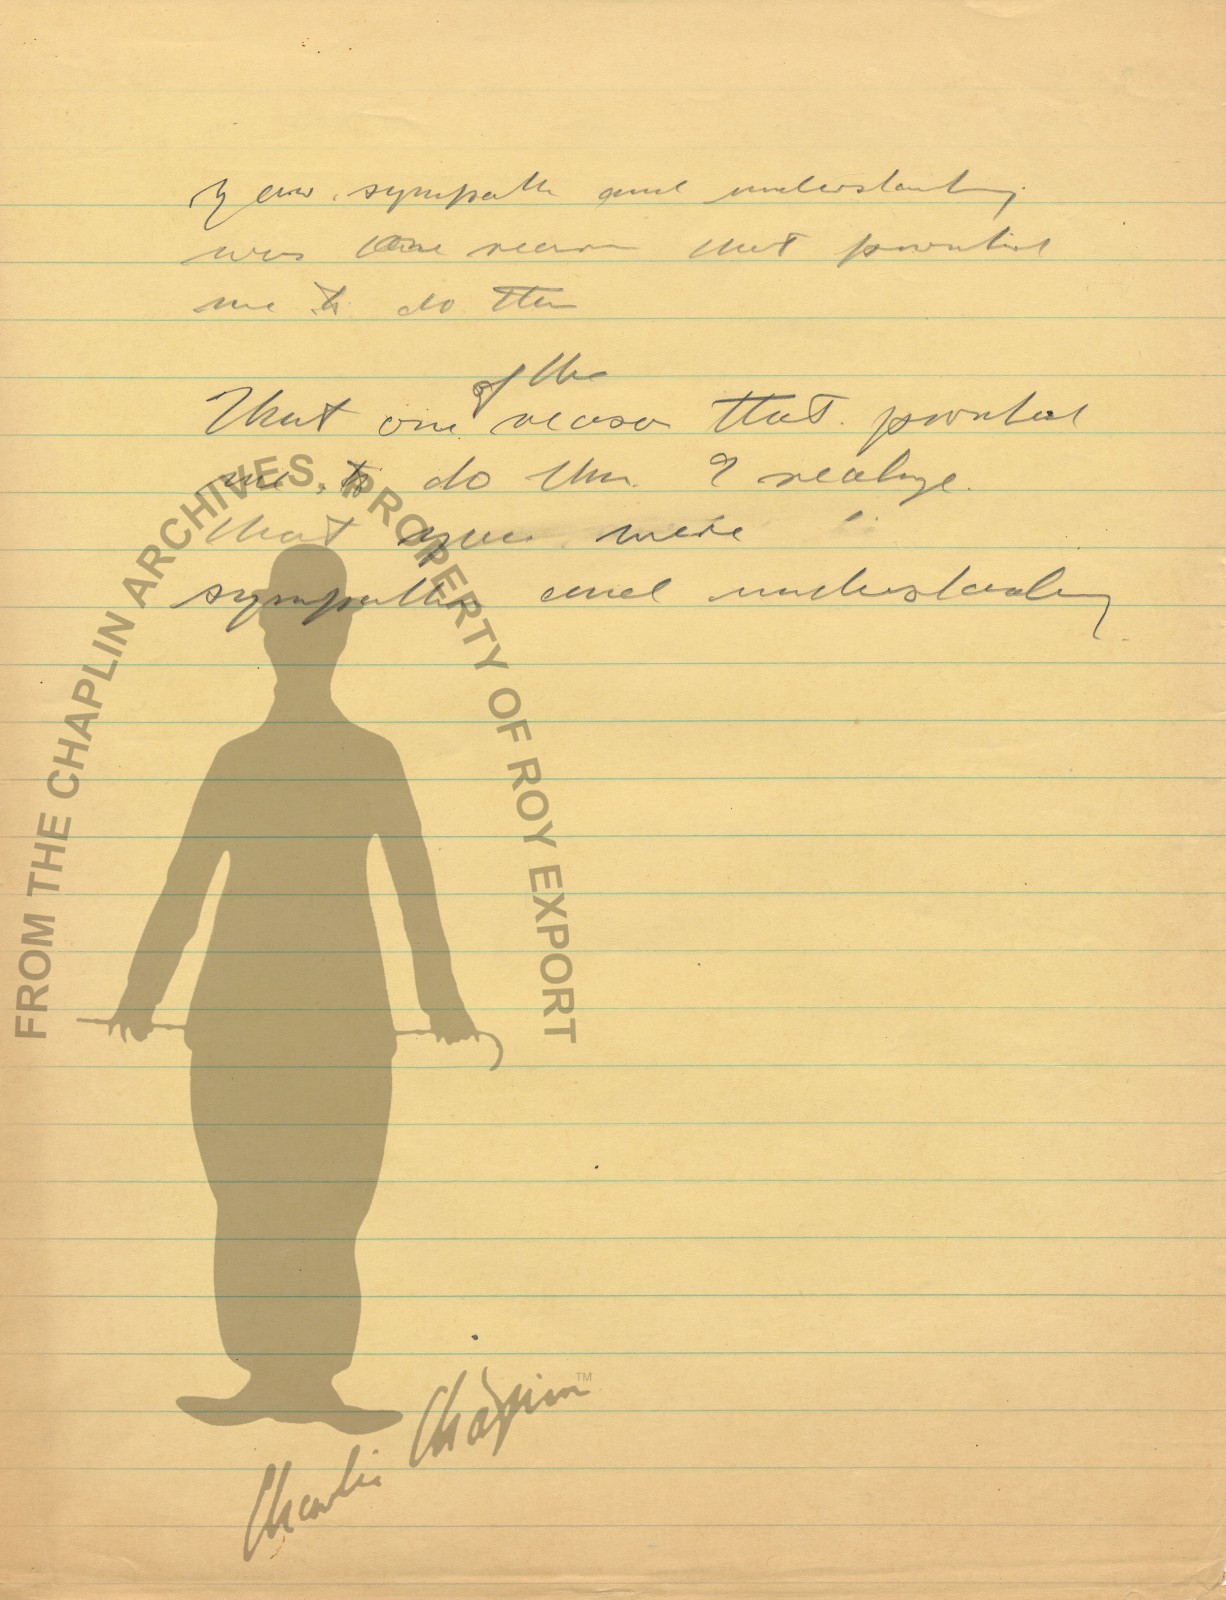 your sympathe and understanding
was one reason that promted
me to do this
of the
That one reason that promted
me to do this I realize
that you were
sympathe and understanding
FROM THE CHAPLIN ARCHIVES, PROPERTY OF ROY EXPORT
Charlie Chaplin TM